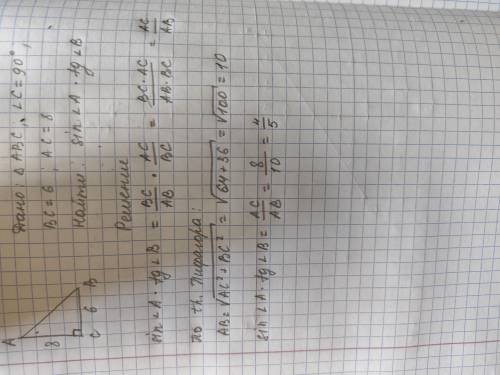 Дано: Δ ABC, ∠C = 90°,
BC = 6, AC = 8
Найти: sin ∠A · tg ∠B
A
8
C 6 B
Решение
sin ∠A · tg ∠B = BC/AB · AC/BC = BC·AC/AB·BC = AC/AB
по th. Пифагора:
AB = √AC² + BC² = √64+36 = √100 = 10
sin ∠A · tg ∠B = AC/AB = 8/10 = 4/5